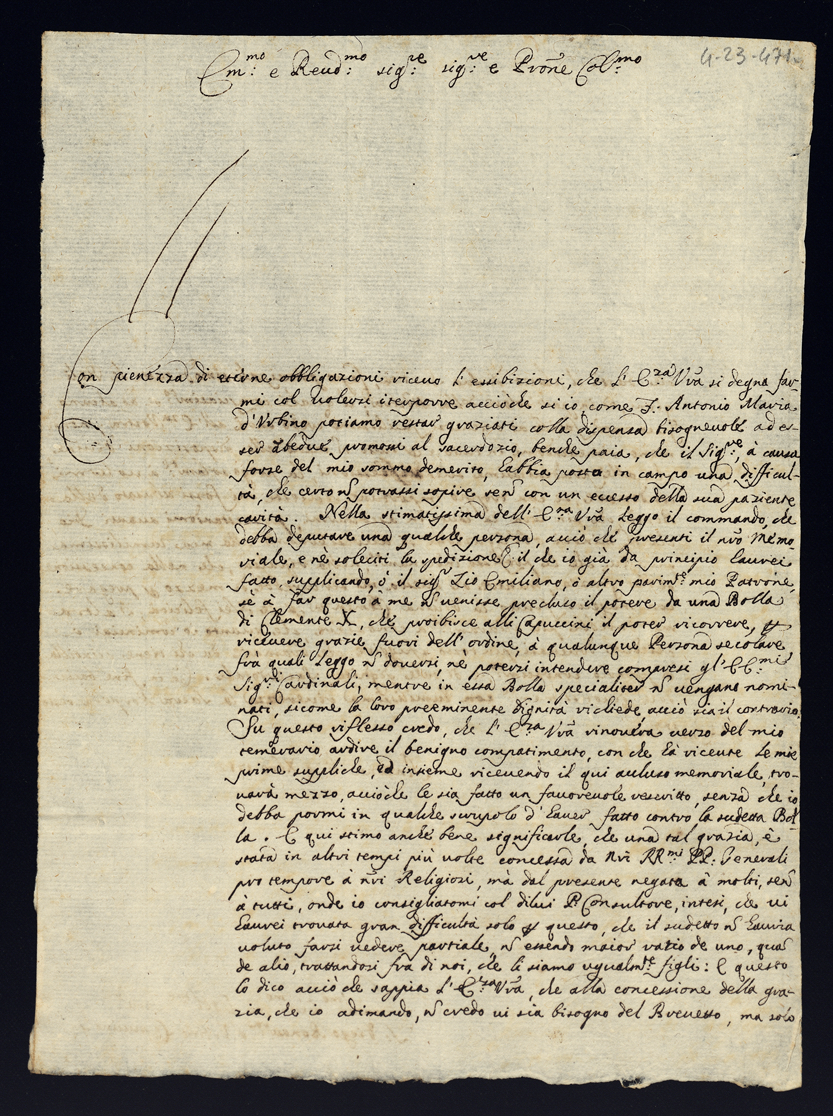 4-23-471
Em:mo e Reud:mo sig:re sig:re e Prõne Col:mo
Con pienezza di eterne obbligazioni riceuo l'essibizioni, che l'E:za Vrã si degna far-
mi col uolersi iterporre acciòche si io come F. Antonio Maria
d'Vrbino potiamo restar graziati colla dispensa bisogneuole ad es-
ser ambedue promossi al sacerdozio, benche paia, che il Sig:re, à causa
forse del mio sommo demerito, habbia posta in campo una difficul-
tà, che certo nõ potrassi sopire senõ con un eccesso della sua paziente
carità. Nella stimatissima dell'E:za Vrã leggo il commando, che
debba deputare una qualche persona, acciò che presenti il nrõ Memo-
riale, e nè soleciti la spedizione; il che io già da principio haurei
fatto, supplicando, ò il sig: Zio Emiliano, ò altro parim:te mio Patrone,
sè à far questo à me nõ uenisse precluso il potere da una Bolla
di Clemente X, che proibisce alli Capuccini il poter ricorrere, p
riceuere grazie fuori dell'ordine, à qualunque Persona secolare
frà quali leggo nõ douersi, nè potersi intendere compresi gl'EE:mi
Sig:ri Cardinali, mentre in essa Bolla specialiter nõ uengano nomi-
nati, sicome la loro preeminente dignità richiede, acciò sia il contrario.
Su questo riflesso credo, che l'E:za Vrã rinouerà uerso del mio
temerario ardire il benigno compatimento, con che hà riceute le mie
prime suppliche, ed insieme riceuendo il qui accluso memoriale, tro-
uarà mezzo, acciòche le sia fatto un fauoreuole rescritto, senza che io
debba pormi in qualche scrupolo d'hauer fatto contro la sudetta Bol-
la. E qui stimo anche bene significarle, che una tal grazia, è
stata in altri tempi più uolte concessa da nri RR:mi PP: Generali
pro tempore à nrĩ Religiosi, mà dal presente negata à molti, senõ
à tutti, onde io consigliatomi col dilui P: Consultore, intesi, che ui
haurei trouata gran difficultà solo p questo, che il sudetto nõ hauria
uoluto farsi uedere partiale, nõ essendo maior ratio de uno, quã
de alio, trattandosi frà di noi, che li siamo ugualm:te figli: E questo
lo dico acciò che sappia l'E:za Vrã, che alla concessione della gra-
zia, che io adimando, nõ credo ui sia bisogno del Breuetto, ma solo